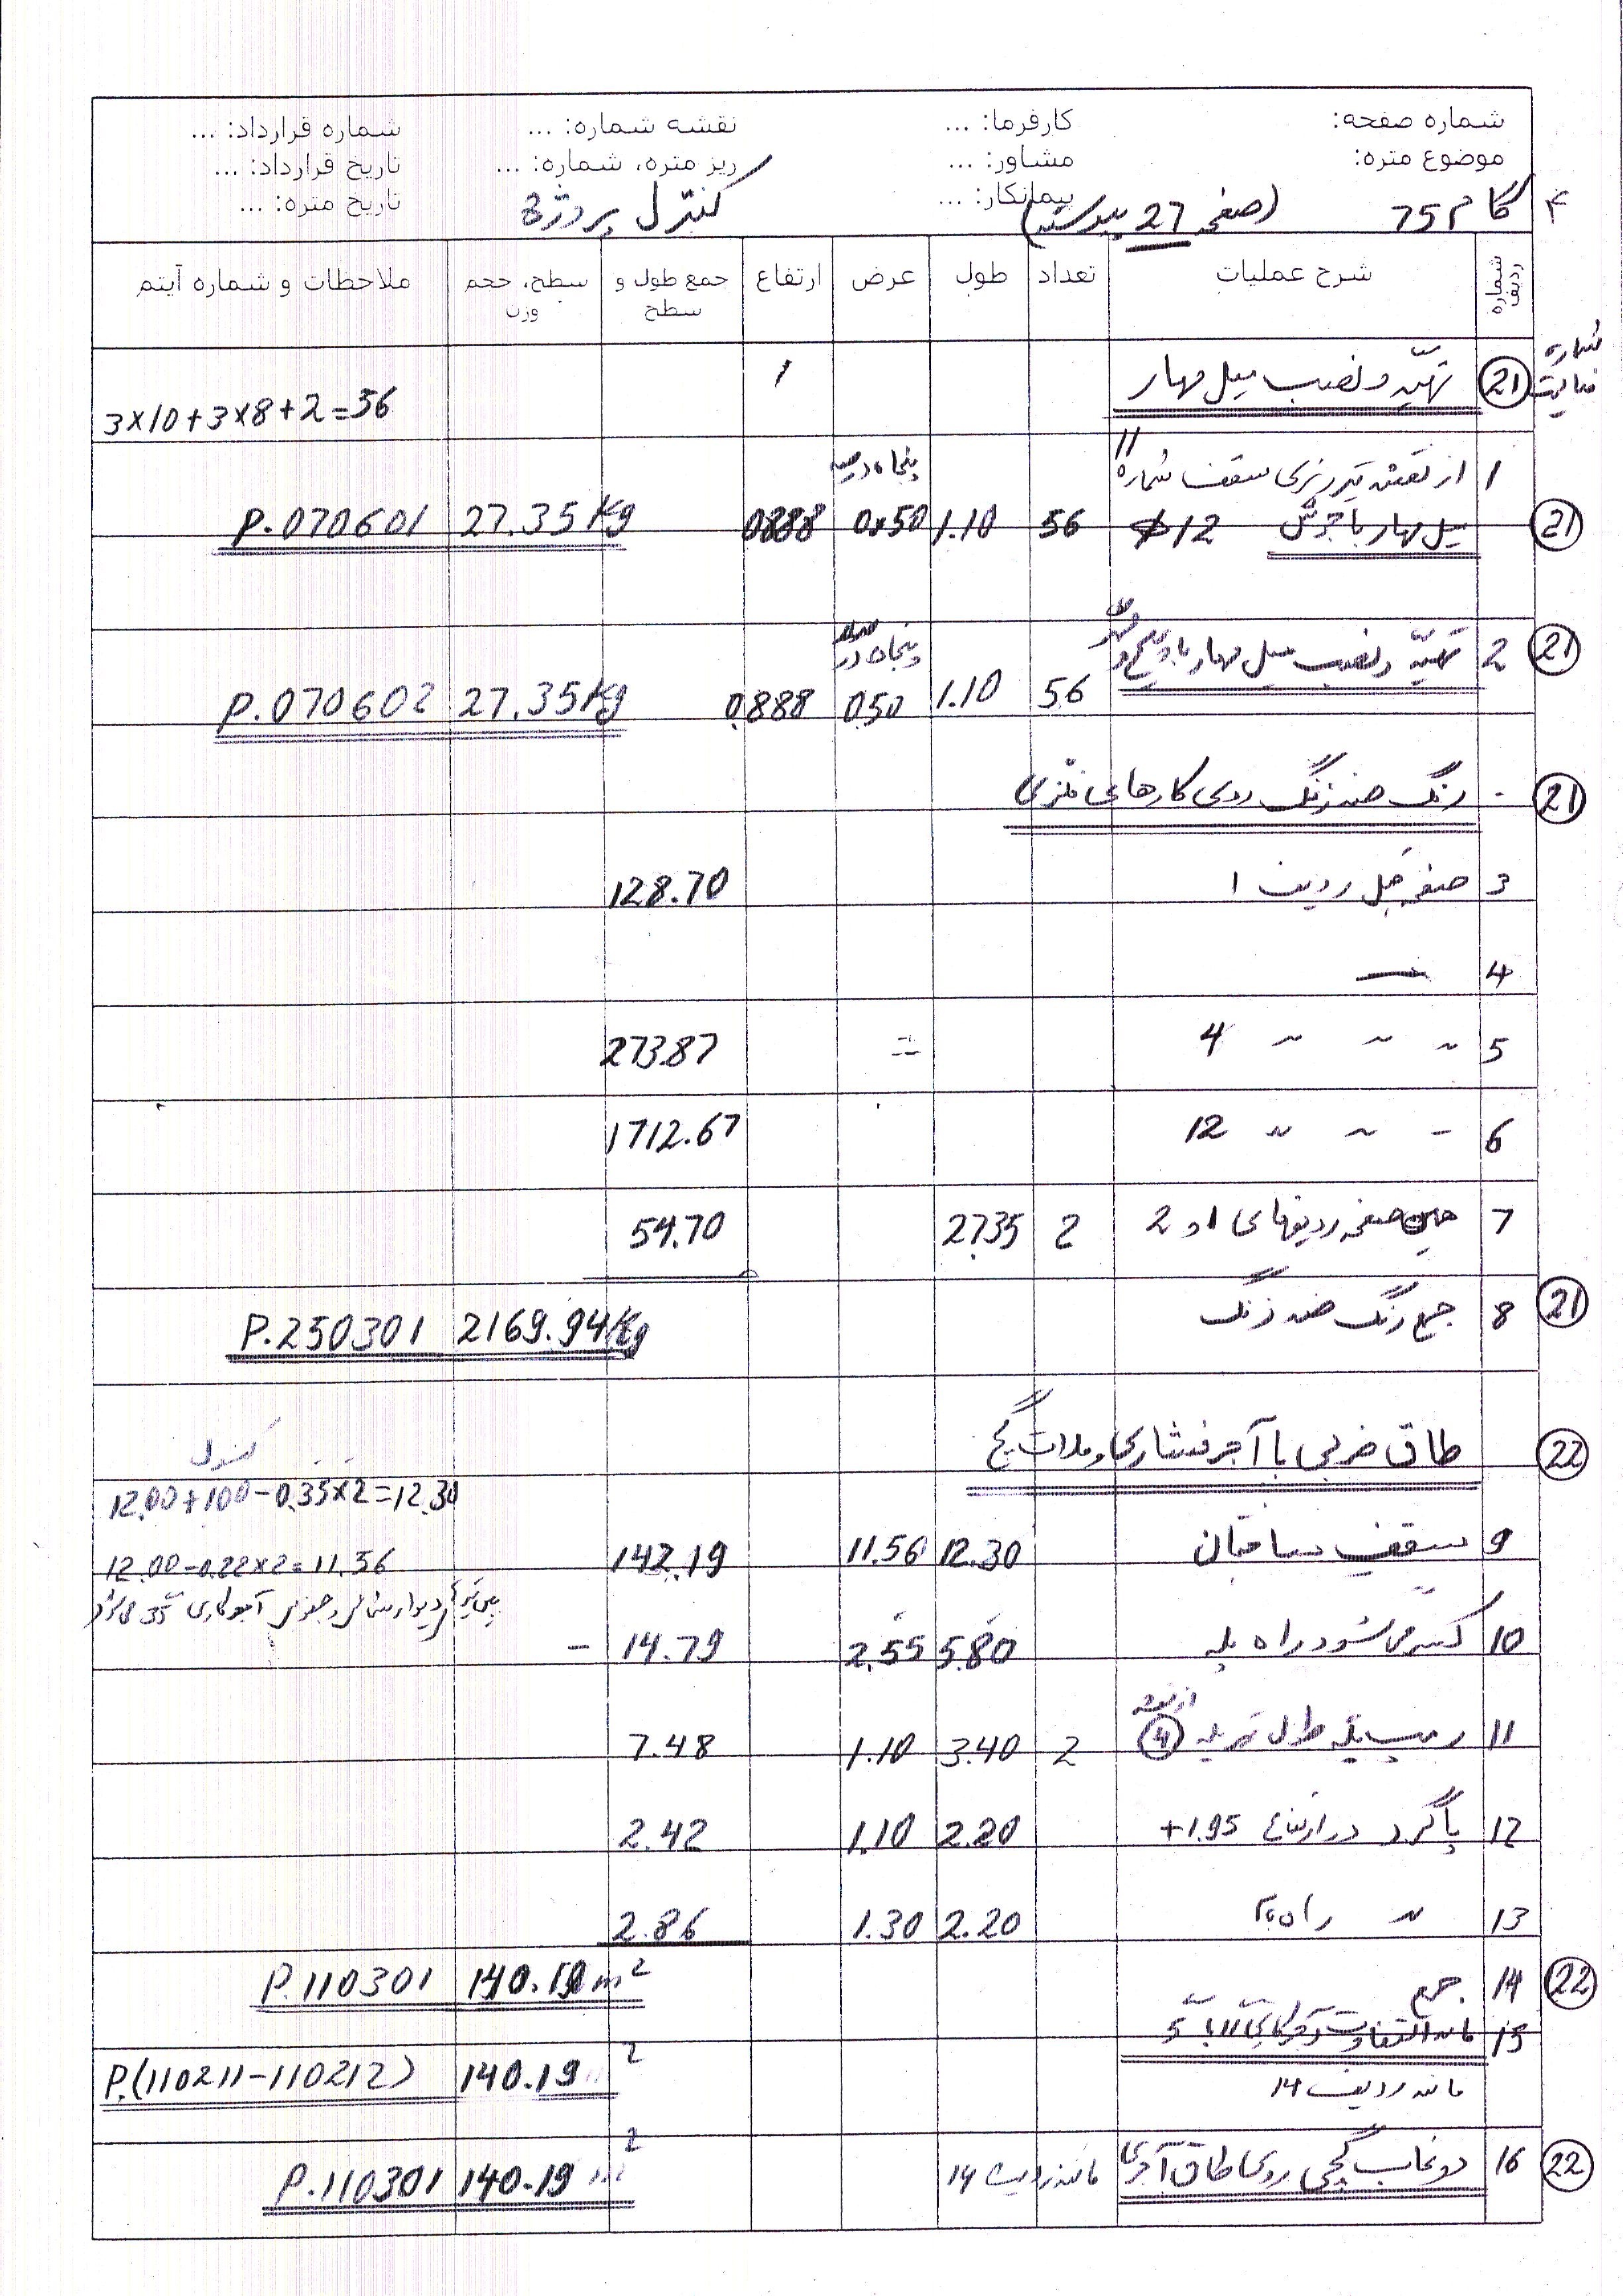 شماره صفحه: کارفرما: ... نقشه شماره: ... شماره قرارداد: ...
موضوع متره: مشاور: ... ریز متره، شماره: ... تاریخ قرارداد: ...
پیمانکار: ... تاریخ متره: ...
گام 75 (صفحه 27 پیوسته) کنترل پروژه
شماره ردیف شرح عملیات تعداد طول عرض ارتفاع جمع طول و سطح سطح، حجم وزن ملاحظات و شماره آیتم
شماره فعالیت
21 تهیّه و نصب میل مهار 3×10+3×8+2=56
1 از نقشه تیرریزی سقف شماره 11 پنجاه درصد
21 میل مهار با جوش ϕ12 56 1.10 0.50 0.888 27.35 Kg P.070601
21 2 تهیّه و نصب میل مهار با پیچ و مهره پنجاه درصد
56 1.10 0.50 0.888 27.35 Kg P.070602
21 - رنگ ضد زنگ روی کارهای فلزی
3 صفحه قبل ردیف 1 128.70
4 —
5 〃 〃 〃 4 273.87
6 〃 〃 〃 12 1712.67
7 همین صفحه ردیفهای 1 و 2 2 27.35 54.70
21 8 جمع رنگ ضد زنگ 2169.94 Kg P.250301
22 طاق ضربی با آجر فشاری و ملات گچ
کنسول
12.00+1.00-0.35×2=12.30
9 سقف ساختمان 12.30 11.56 142.19
12.00-0.22×2=11.56
10 کسر می‌شود راه پله 5.80 2.55 14.79 -
11 رمپ پله طول تیر پله 4 2 3.40 1.10 7.48
12 پاگرد در ارتفاع +1.95 2.20 1.10 2.42
13 〃 راه پله 2.20 1.30 2.86
22 14 جمع 140.19 m2 P.110301
15 مابه التفاوت
مانند ردیف 14 140.19 m2 P.(110211-110212)
22 16 دوغاب گچی روی طاق آجری مانند ردیف 14 140.19 m2 P.110301